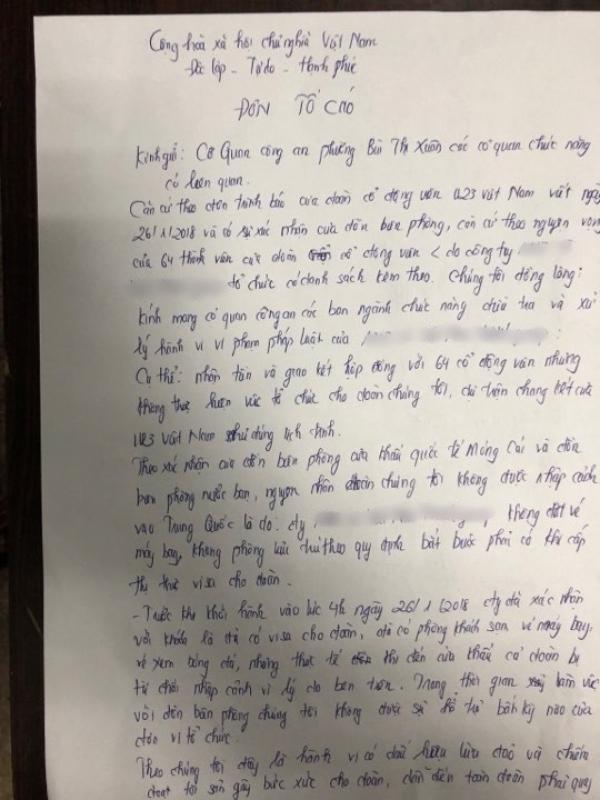 Cộng hoà xã hội chủ nghĩa Việt Nam
Độc lập - Tự do - Hạnh phúc
ĐƠN TỐ CÁO
Kính gửi: Cơ Quan công an phường Bùi Thị Xuân các cơ quan chức năng
có liên quan.
Căn cứ theo đơn trình báo của đoàn cổ động viên U23 Việt Nam viết ngày
26/1/2018 và có sự xác nhận của đồn biên phòng, căn cứ theo nguyện vọng
của 64 thành viên của đoàn cổ động viên < do công ty
tổ chức có danh sách kèm theo. Chúng tôi đồng lòng:
Kính mong cơ quan công an các ban ngành chức năng điều tra và xử
lý hành vi vi phạm pháp luật của
Cụ thể: nhận tiền và giao kết hợp đồng với 64 cổ động viên nhưng
không thực hiện việc tổ chức cho đoàn chúng tôi, dự trận chung kết của
U23 Việt Nam như đúng lịch trình.
Theo xác nhận của đồn biên phòng cửa khẩu quốc tế Móng Cái và đồn
biên phòng nước bạn, nguyên nhân đoàn chúng tôi không được nhập cảnh
vào Trung Quốc là do: cty không đặt vé
máy bay, không phòng lưu trú theo quy định bắt buộc phải có khi cấp
thị thực visa cho đoàn.
- Trước khi khởi hành vào lúc 4h ngày 26/1/2018 cty đã xác nhận
với khách là đã có visa cho đoàn, đã có phòng khách sạn vé máy bay,
vé xem bóng đá, nhưng thực tế thì đến cửa khẩu cả đoàn bị
từ chối nhập cảnh vì lý do bên trên. Trong thời gian làm việc
với đồn biên phòng chúng tôi không được sự hỗ trợ bất kỳ nào của
đơn vị tổ chức.
Theo chúng tôi đây là hành vi có dấu hiệu lừa đảo và chiếm
đoạt tài sản gây bức xúc cho đoàn, dẫn đến toàn đoàn phải quay